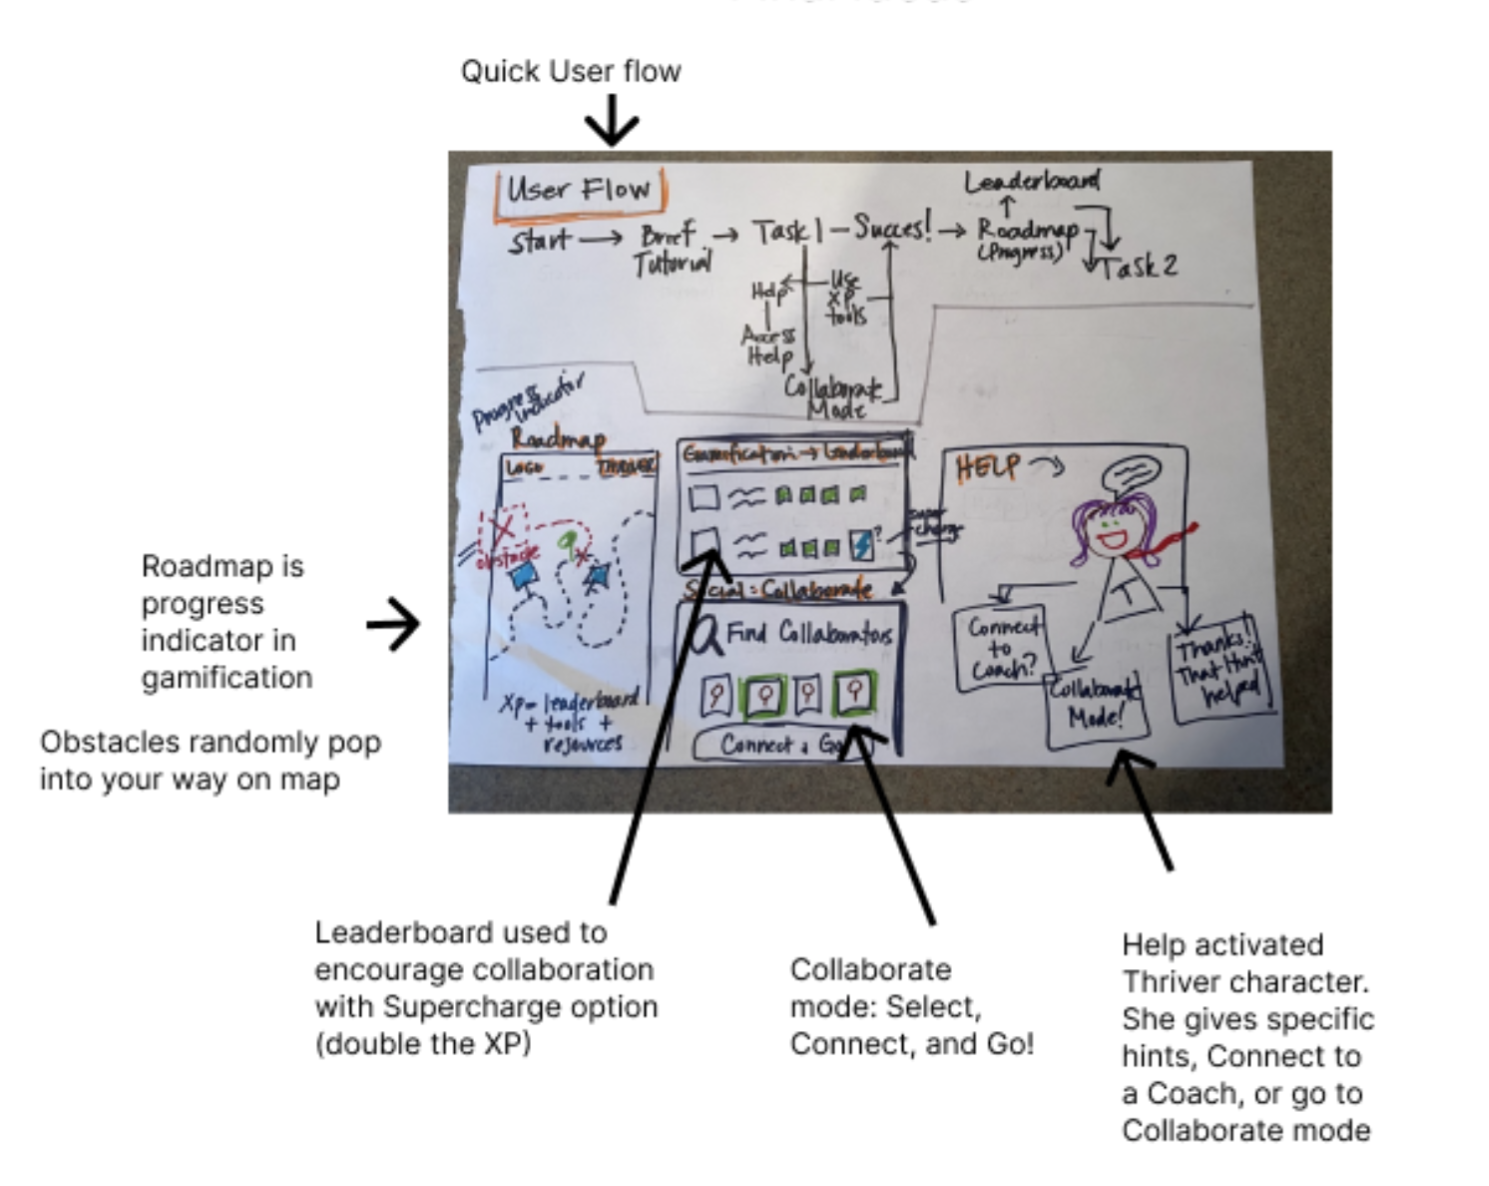 Quick User flow
User Flow
Leaderboard
Start → Brief → Task 1 – Succes! → Roadmap
Tutorial
(Progress)
Task 2
Help
Use
XP
tools
Access
Help
Collaborate
Mode
Progress
Indicator
Roadmap
LOGO THRIVER
obstacle
Xp = leaderboard
+ tools +
resources
Gamification → Leaderboard
?
super
charge
Social = Collaborate
Find Collaborators
Connect & Go
HELP
Connect
to
Coach?
Collaborate
Mode!
Thanks!
That Hint
helped
Roadmap is
progress
indicator in
gamification
Obstacles randomly pop
into your way on map
Leaderboard used to
encourage collaboration
with Supercharge option
(double the XP)
Collaborate
mode: Select,
Connect, and Go!
Help activated
Thriver character.
She gives specific
hints, Connect to
a Coach, or go to
Collaborate mode